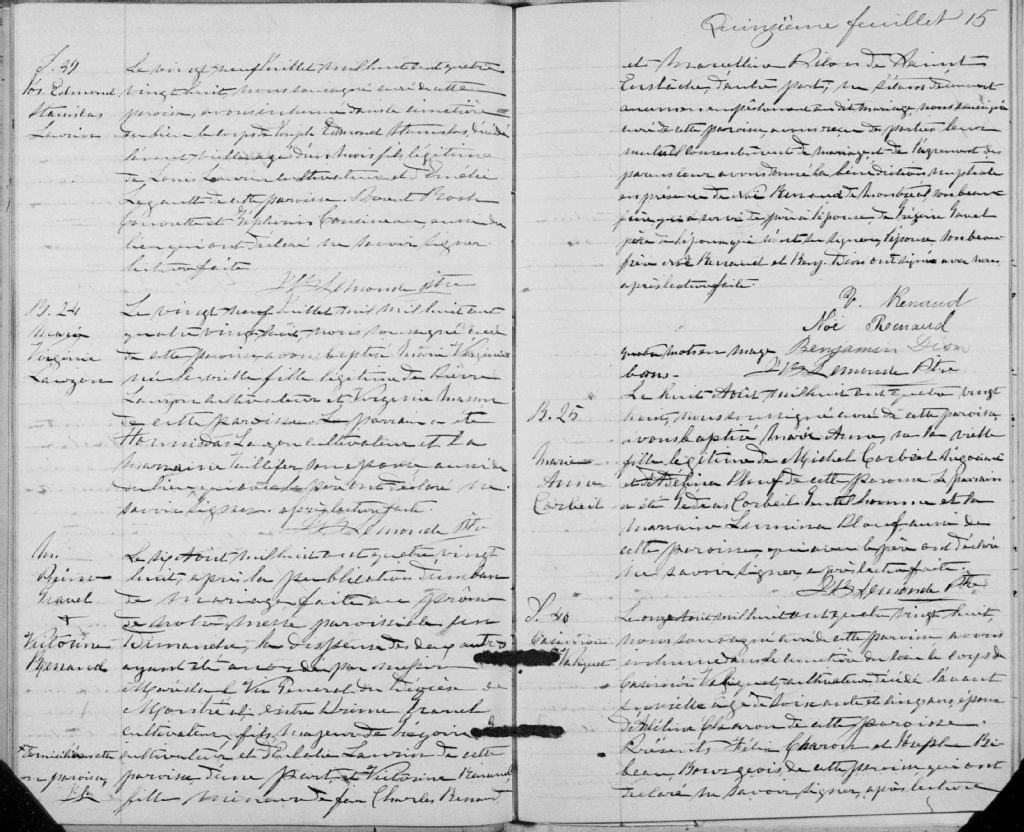 S. 39
Jos. Edmond
Stanislas
Lavoie
Le vingt neuf Juillet mil huit cent quatre
vingt huit, nous soussigné curé de cette
paroisse, avons inhumé dans le cimetière
du lieu le corps de Joseph Edmond Stanislas décédé
l'avant-veille agé d'un mois fils légitime
de Louis cultivateur et d'Emélie
Legault de cette paroisse. Présent Roch
et Zéphirin Cousineau, aussi du
lieu qui ont déclaré ne savoir signer
lecture faite
Lemonde Ptre
B. 24
Marie
Virginie
Lauzon
Le vingt neuf Juillet mil huit cent
quatre vingt huit, nous soussigné curé
de cette paroisse avons baptisé Marie Virginie
née la veille fille légitime de
Lauzon cultivateur et Virginie Masson
de cette paroisse Le parrain a été
Hormidas Lauzon cultivateur et la
marraine son épouse aussi de
du lieu qui avec le père ont déclaré ne
savoir signer. après lecture faite.
Lemonde Ptre
M.
Gravel
+
Victorine
Renaud
Le six Août mil huit cent quatre vingt
huit, après la publication d'un ban
de mariage faite au prône
de notre messe paroissiale un
Dimanche, la dispense de deux autres
ayant été accordée par Monsieur
Maréchal Vic Général du Diocèse de
Montréal, entre Gravel
cultivateur, fils majeur de Grégoire
cultivateur et de de cette
paroisse d'une part, et Victorine Renaud,
fille mineure de feu Charles Renaud
x domiciliés cette
paroisse,
Quinzième feuillet 15
et Marcelline de Saint
Eustache, d'autre part, ne s'étant découvert
aucun empêchement au dit mariage, nous soussigné
curé de cette paroisse, avons reçu des parties leur
mutuel consentement de mariage et de l'agrément des
parents leur avons donné la bénédiction nuptiale
en présence de Noé Renaud de Montréal, son beau
frère qui a servi de père à l'épouse de Grégoire Gravel
père de l'époux qui n'ont su signer, l'épouse son beau
frère Noé Renaud et Benj. Dion ont signé avec nous
après lecture faite.
V. Renaud
Noé Renaud
Benjamin Dion
quatre mots en marge
bons -
Lemonde Ptre
B. 25
Marie
Anne
Corbeil
Le huit Août mil huit cent quatre vingt
huit, nous soussigné curé de cette paroisse,
avons baptisé Marie Anne, née la veille
fille légitime de Michel Corbeil Négociant
et de Délina Plouf de cette paroisse Le parrain
a été Corbeil Gentilhomme et la
marraine Plouf, aussi de
cette paroisse, qui avec le père ont déclaré
ne savoir signer, après lecture faite
Lemonde Ptre
S. 40
Casimir
Valiquet
Le onze Août mil huit cent quatre vingt huit,
nous soussigné curé de cette paroisse avons
inhumé dans le cimetière du lieu le corps de
Casimir Valiquet cultivateur décédé l'avant
veille agé de soixante et cinq ans, époux
de Charon de cette paroisse.
Présents Félix Charon et Joseph
Bourgeois, de cette paroisse qui ont
déclaré ne savoir signer, après lecture